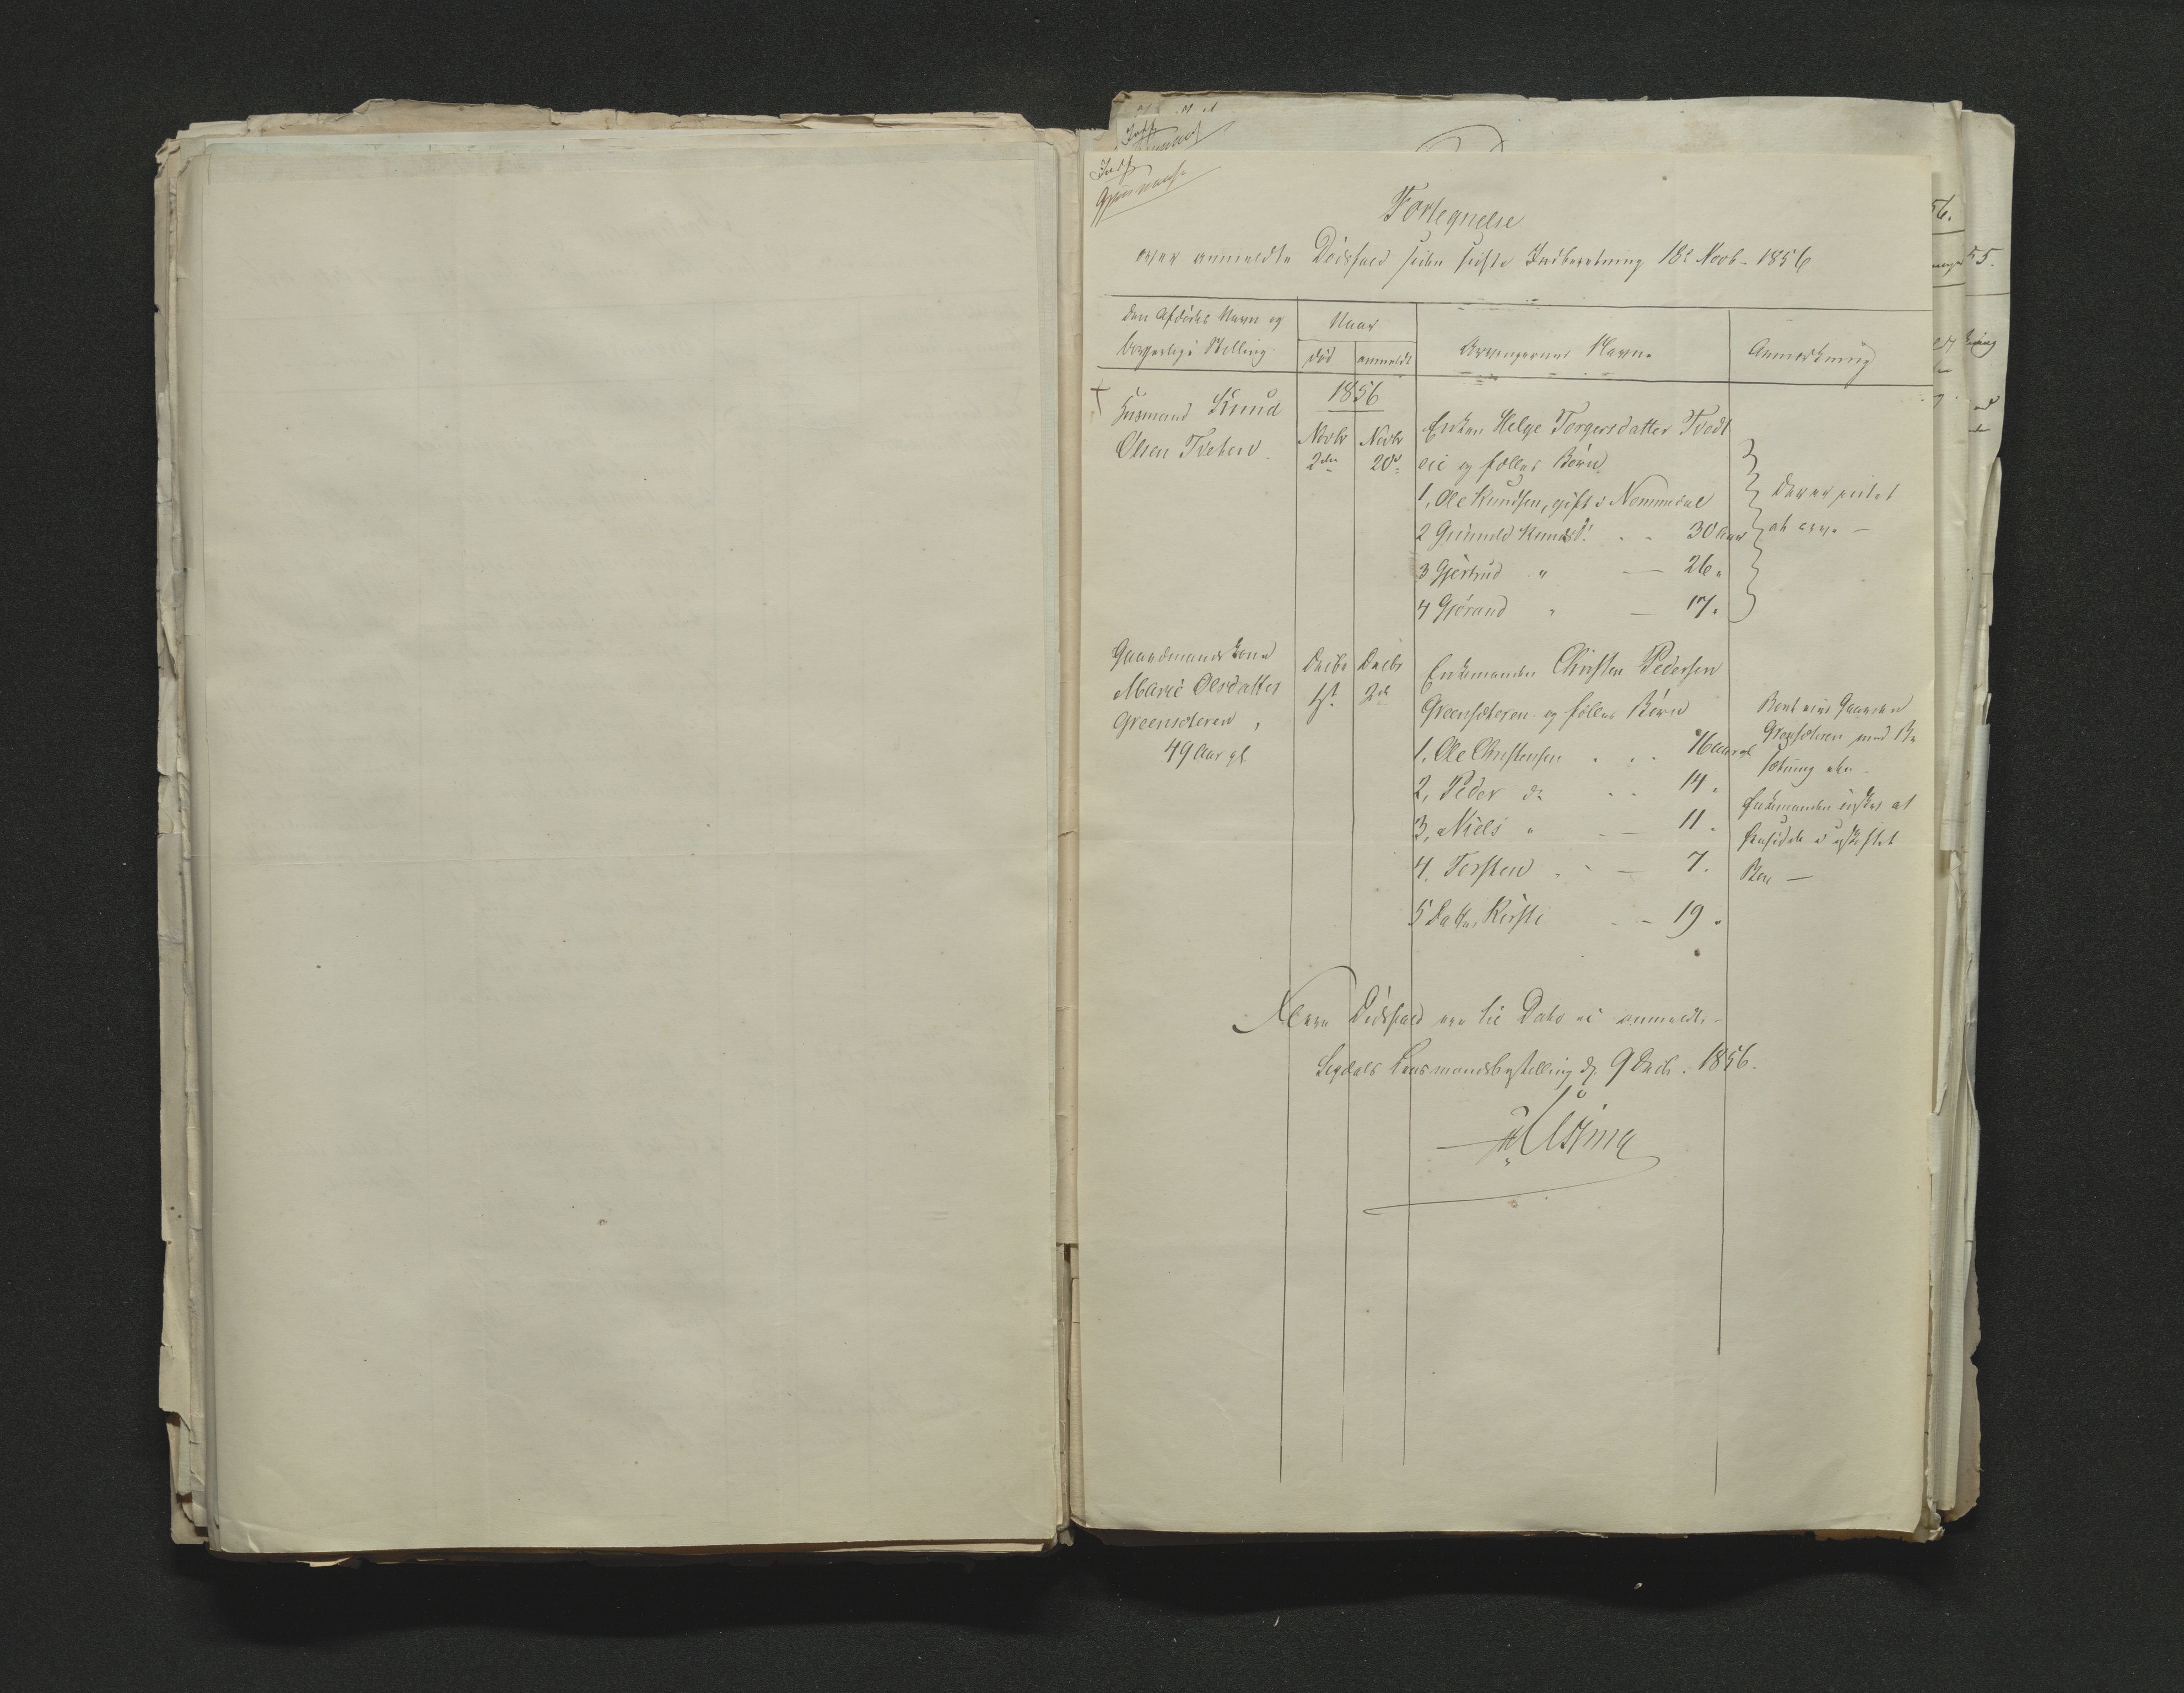 Indf
Fortegnelse
over anmeldte Dødsfald siden sidste Indberetning 18de Novb. 1856
den Afdødes Navn og
borgerlige Stilling
Naar
død
anmeldt
Arvingernes Navne
Anmærkning
1856
Huusmand Knud
Olsen Tveten
Novbr
2den
Novbr
20d
Enken Helge Torgersdatter Tvedt
eie og fælles Børn
1, Ole Knudsen, gift i Nommedal
2 Gunnild Knudsd. . - 30 Aar
3 Gjertrud " — 26 "
4 Gjørand " — 17 "
Der er intet
at arve —
Gaardmandskone
Marie Olsdatter
Greensæteren,
49 Aar gl
Decbr
1st
Decbr
2d
Enkemanden Christen Pedersen
Greensæteren og fælles Børn
1. Ole Christensen . . . 16 Aar gl
2, Peder do . . 14 "
3, Niels " . — 11 "
4. Torsten . . — 7 .
5 Datter Kirsti . — 19 "
Boet eier Gaarden
Grensæteren med Be
sætning etc.
Enkemanden ønsker at
hensidde i uskiftet
Boe —
Flere Dødsfald ere til Dato ei anmeldte
Sigdals Lensmandsbestilling d. 9 Decb. 1856.